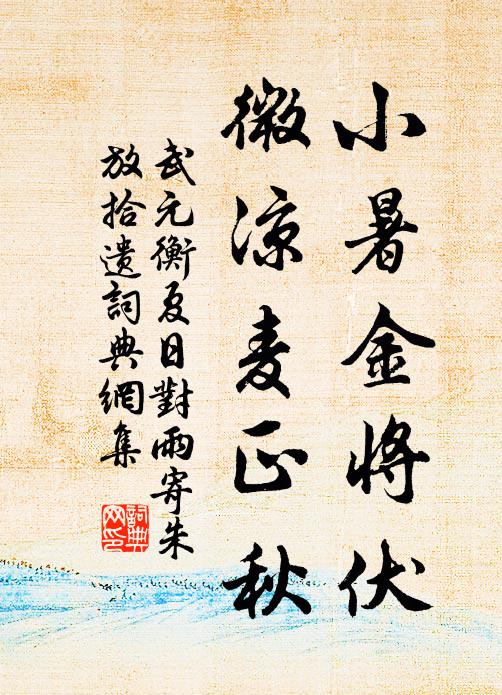 小暑金將伏
微涼麦正秋
武元衡夏日對雨寄朱
放拾遺詞典網集
詞典
网印